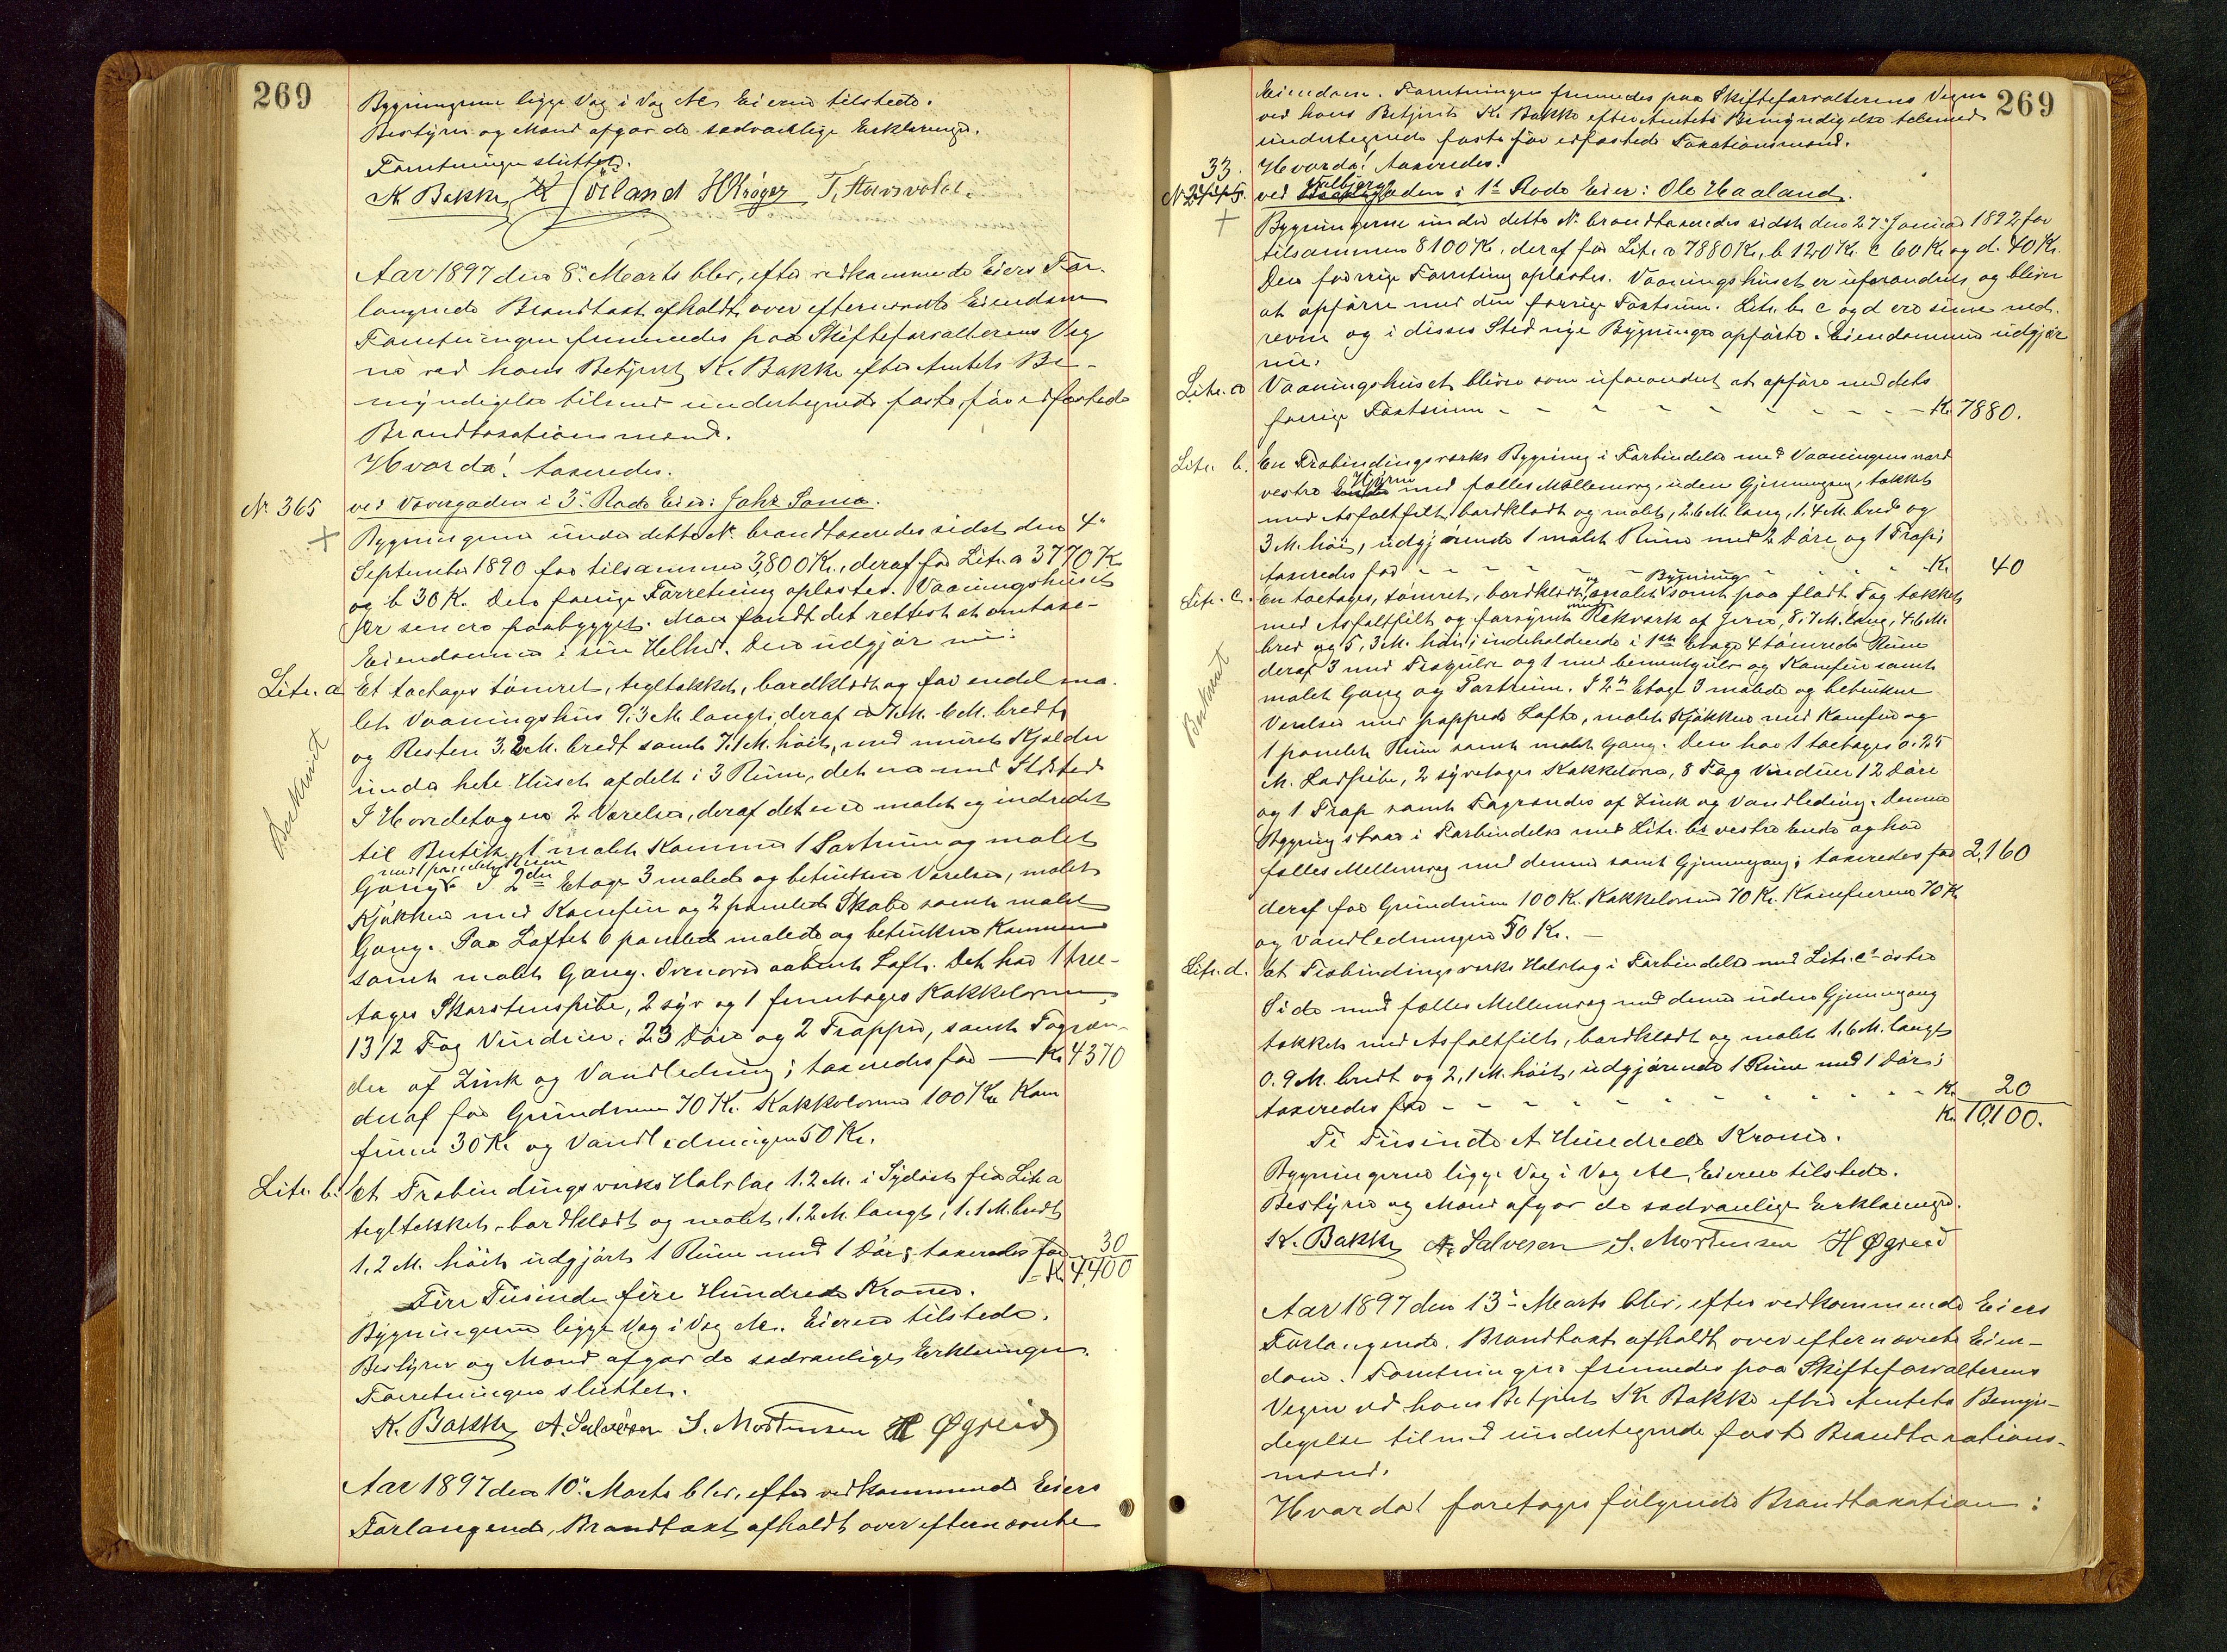 269
Bygningerne ligge Væg i Væg Al. Eieren tilstede.
Bestyrer og Mænd afgav de sædvanlige Erklæringer.
Forretningen sluttet.
K. Bakke
Aar 1897 den 8' Marts blev, efter vedkommende Eiers For-
langende Brandtaxt afholdt over efternævnte Eiendom
Forretningen fremmedes paa Skifteforvalterens Veg
ne ved hans Betjent K. Bakke efter Amtets Be-
myndigelse tilmed undertegnede faste, før edfæstede
Brandtaxationsmænd.
Hvorda! taxeredes.
No 365 ved Vævergaden i 3' Rode Eier: Johs Sømæ.
Bygningerne under dette No brandtaxeredes sidst den 4'
September 1890 for tilsammen 3,800 Kr., deraf for Litr. a 3770 K
og b 30 K. Den forrige Forretning oplæstes. Vaaningshuset
er senere paabygget. Man fandt det rettest at omtaxe-
re Eiendommen i sin Helhed. Den udgjør nu:
Litr. a Et toetages tømret, tegltækket, bordklædt og for endel ma-
let Vaaningshus 9,3 M. langt, deraf 7 M. 6 M. bredt
og Resten 3.2 M. bredt samt 7,1 M. høit, med muret Kjælder
under hele Huset afdelt i 3 Rum, det ene med Ildsted
I Hovedetagen 2 Værelser, deraf det ene malet og indredet
til Butik, 1 malet Kammer 1 Portrum og malet
med 1 panelet Rum
Gang. I 2den Etage 3 malede og betrukne Værelser, malet
Kjøkken med Komfur og 2 panelede Skabe samt malet
Gang. Paa Loftet 6 panelede malede og betrukne Kammer
samt malet Gang. Ovenover aabent Loft. Det har 1 tree-
tages Skorstenspibe, 2 syv og 1 femetages Kakkelovn,
13 1/2 Fag Vinduer, 23 Døre og 2 Trapper, samt Tagren-
der af Zink og Vandledning; taxeredes for — Kr 4370
deraf for Grundmur 70 Kr. Kakkelovne 100 Kr Kom
furer 30 Kr og Vandledningen 50 Kr.
Litr. b. Et Trebindingsværks Halvtag 1.2 M. i Sydøst fra Litr a
tegltækket, bordklædt og malet, 1,2 M. langt, 1.1 M. bredt
1,2 M. høit udgjørt 1 Rum med 1 Dør; taxeredes for 30
Kr 4,400
Fire Tusinde fire Hundrede Kroner.
Bygningerne ligge Væg i Væg Al. Eieren tilstede.
Bestyrer og Mænd afgav de sædvanlige Erklæringer.
Forretningen sluttet.
K. Bakke A. Salvesen S. Mortensen H Øgreid
Beskrevet
Aar 1897 den 10' Marts blev, efter vedkommende Eiers
Forlangende, Brandtaxt afholdt over efternævnte
269
Eiendom. Forretningen fremmedes paa Skifteforvalterens Vegne
ved hans Betjent K. Bakke efter Amtets Bemyndigelse tilmed
undertegnede faste før edfæstede Taxationsmænd.
33. Hvorda! taxeredes.
Valbjerg
No 2445. ved gaden i 1' Rode Eier: Ole Haaland.
Bygningerne under dette No brandtaxeredes sidst den 27' Januar 1892 for
tilsammen 8100 Kr., deraf for Litr. a 7880 Kr., b 120 Kr. c 60 Kr og d. 40 Kr.
Den forrige Forretning oplæstes. Vaaningshuset er uforandret og bliver
at opføre med den forrige Taxtsum. Litr. b. c og d ere siden ned-
revne og i disses Sted nye Bygninger opførte. Eiendommen udgjør
nu:
Litr. a Vaaningshuset bliver som uforandret at opføre med dets
forrige Taxtsum - - - - - - - Kr 7880.
Litr. b. En Trebindingsværks Bygning i Forbindelse med Vaaningens nord
Hjørne
vestre Ende med fælles Mellemvæg, uden Gjennemgang, tækket
med Asfaltfilt, bordklædt og malet, 2.6 M. lang, 1.4 M. bred og
3 M. høi, udgjørende 1 malet Rum med 2 Døre og 1 Trap;
taxeredes for - - - - - - - Kr. 40
og Bygning
Litr. c. En toetages, tømret, bordklædt, malet samt paa fladt Tag tækket
med
med Asfaltfilt og forsynet Rekværk af Jern, 8,7 M. lang, 4.6 M.
bred og 5,3 M. høi; indeholdende i 1ste Etage 4 tømrede Rum
deraf 3 med Trægulv og 1 med Cementgulv og Komfur samt
malet Gang og Portrum. I 2den Etage 3 malede og betrukne
Værelser med pappede Lofte, malet Kjøkken med Komfur og
1 panelet Rum samt malet Gang. Den har 1 toetages 0.25
M. Rørpibe, 2 syvetages Kakkelovne, 8 Fag Vinduer 12 Døre
og 1 Trap samt Tagrender af Zink og Vandledning. Denne
Bygning staar i Forbindelse med Litr. b's vestre Ende og har
fælles Mellemvæg med denne samt Gjennemgang; taxeredes for 2,160
deraf for Grundmur 100 Kr. Kakkelovne 70 Kr. Komfurerne 70 Kr
og Vandledningen 50 Kr. —
Beskrevet
Litr. d. Et Trebindingsværks Halvtag i Forbindelse med Litr. c's østre
Side med fælles Mellemvæg med denne uden Gjennemgang
tækket med Asfaltfilt, bordklædt og malet 1,6 M. langt
0.9 M. bredt og 2,1 M. høit, udgjørende 1 Rum med 1 Dør;
taxeredes for - - - - - - - Kr. 20
Kr. 10,100.
Ti Tusinde Et Hundrede Kroner.
Bygningerne ligge Væg i Væg Al, Eieren tilstede.
Bestyrer og Mænd afgav de sædvanlige Erklæringer.
K. Bakke A. Salvesen S. Mortensen H Øgreid
Aar 1897 den 13' Marts blev, efter vedkommende Eiers
Forlangende, Brandtaxt afholdt over efternævnte Eien-
dom. Forretningen fremmedes paa Skifteforvalterens
Vegne ved hans Betjent K. Bakke efter Amtets Bemyn-
digelse tilmed undertegnede faste Brandtaxations-
mænd.
Hvorda! foretoges følgende Brandtaxation: